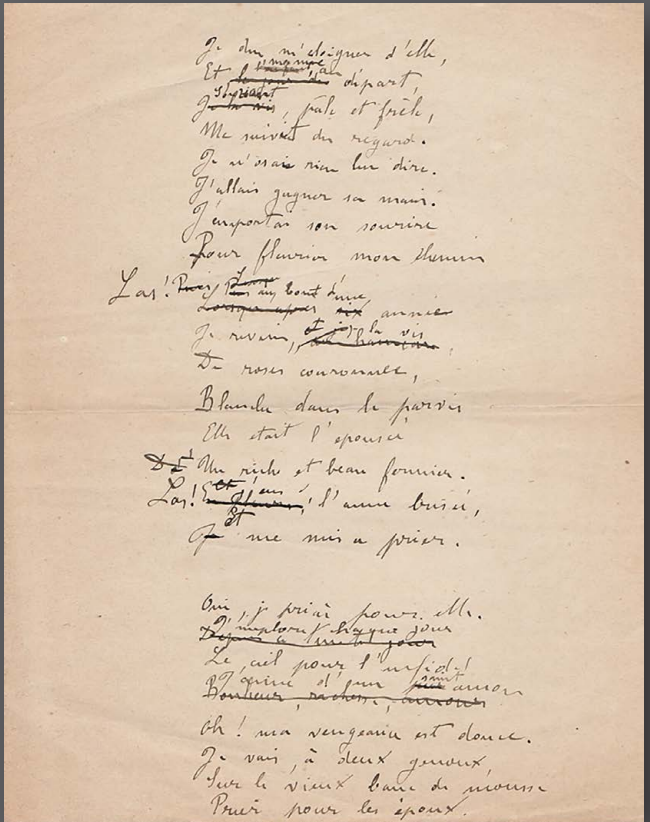 Je dus m'éloigner d'elle,
Et l'moment au
le jour du départ,
souriant
Je la vis, pâle et frêle,
Me suivit du regard.
Je n'osais rien lui dire.
J'allais gagner sa main.
J'emportai son sourire
Pour fleurir mon chemin
Las! Puis au bout d'une
Lorsque après six année
Je revins, et je la vis
De roses couronnée,
Blanche dans le parvis
Elle était l'épousée
D' Un riche et beau fermier.
Las! Et l'âme brisée,
Et
Je me mis a prier.
Oui, je priai pour elle.
J'implore chaque jour
Depuis
Le ciel pour l'infidèl
d'un saint amour
Bonheur, richesse, amours
Oh! ma vengeance est douce.
Je vais, à deux genoux
Sur le vieux banc de mousse
Prier pour les époux.